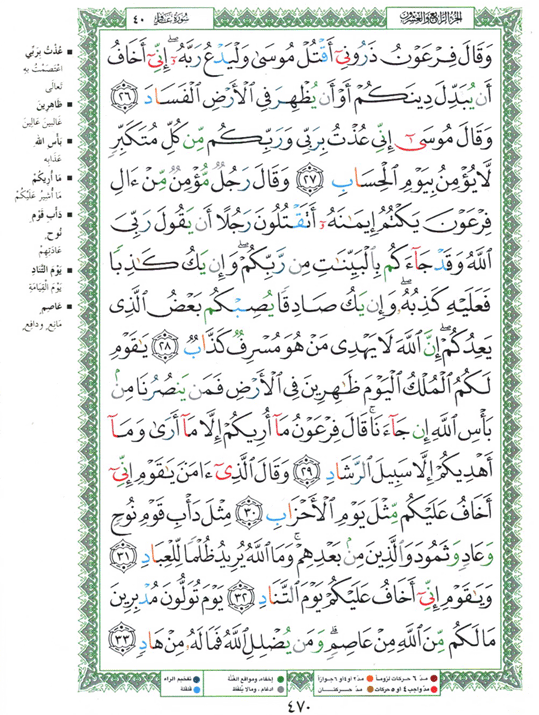 الجزء الرابع والعشرون
سورة غافر ٤٠
وَقَالَ فِرْعَوْنُ ذَرُونِىٓ أَقْتُلْ مُوسَىٰ وَلْيَدْعُ رَبَّهُۥٓ ۖ إِنِّىٓ أَخَافُ
أَن يُبَدِّلَ دِينَكُمْ أَوْ أَن يُظْهِرَ فِى ٱلْأَرْضِ ٱلْفَسَادَ ﴿٢٦﴾
وَقَالَ مُوسَىٰٓ إِنِّى عُذْتُ بِرَبِّى وَرَبِّكُم مِّن كُلِّ مُتَكَبِّرٍ
لَّا يُؤْمِنُ بِيَوْمِ ٱلْحِسَابِ ﴿٢٧﴾ وَقَالَ رَجُلٌ مُّؤْمِنٌ مِّنْ ءَالِ
فِرْعَوْنَ يَكْتُمُ إِيمَٰنَهُۥٓ أَتَقْتُلُونَ رَجُلًا أَن يَقُولَ رَبِّىَ
ٱللَّهُ وَقَدْ جَآءَكُم بِٱلْبَيِّنَٰتِ مِن رَّبِّكُمْ ۖ وَإِن يَكُ كَٰذِبًا
فَعَلَيْهِ كَذِبُهُۥ ۖ وَإِن يَكُ صَادِقًا يُصِبْكُم بَعْضُ ٱلَّذِى
يَعِدُكُمْ ۖ إِنَّ ٱللَّهَ لَا يَهْدِى مَنْ هُوَ مُسْرِفٌ كَذَّابٌ ﴿٢٨﴾ يَٰقَوْمِ
لَكُمُ ٱلْمُلْكُ ٱلْيَوْمَ ظَٰهِرِينَ فِى ٱلْأَرْضِ فَمَن يَنصُرُنَا مِنۢ
بَأْسِ ٱللَّهِ إِن جَآءَنَا ۚ قَالَ فِرْعَوْنُ مَآ أُرِيكُمْ إِلَّا مَآ أَرَىٰ وَمَآ
أَهْدِيكُمْ إِلَّا سَبِيلَ ٱلرَّشَادِ ﴿٢٩﴾ وَقَالَ ٱلَّذِىٓ ءَامَنَ يَٰقَوْمِ إِنِّىٓ
أَخَافُ عَلَيْكُم مِّثْلَ يَوْمِ ٱلْأَحْزَابِ ﴿٣٠﴾ مِثْلَ دَأْبِ قَوْمِ نُوحٍ
وَعَادٍ وَثَمُودَ وَٱلَّذِينَ مِنۢ بَعْدِهِمْ ۚ وَمَا ٱللَّهُ يُرِيدُ ظُلْمًا لِّلْعِبَادِ ﴿٣١﴾
وَيَٰقَوْمِ إِنِّىٓ أَخَافُ عَلَيْكُمْ يَوْمَ ٱلتَّنَادِ ﴿٣٢﴾ يَوْمَ تُوَلُّونَ مُدْبِرِينَ
مَا لَكُم مِّنَ ٱللَّهِ مِنْ عَاصِمٍ ۗ وَمَن يُضْلِلِ ٱللَّهُ فَمَا لَهُۥ مِنْ هَادٍ ﴿٣٣﴾
■ عُذْتُ بِرَبِّي
اعْتَصَمْتُ بِهِ
تَعَالَى
■ ظَاهِرِينَ
غَالِبِينَ عَالِينَ
■ بَأْسِ اللهِ
عَذَابِهِ
■ مَا أُرِيكُمْ
مَا أُشِيرُ عَلَيْكُمْ
■ دَأْبِ قَوْمِ
نُوحٍ
عَادَتِهِمْ
■ يَوْمَ التَّنَادِ
يَوْمَ الْقِيَامَةِ
■ عَاصِمٍ
مَانِعٍ وَدَافِعٍ
مدّ ٦ حركات لزوماً ● مدّ ٢ أو ٤ أو ٦ جوازاً
مدّ واجب ٤ أو ٥ حركات ● مدّ حركتان
إخفاء، ومواقع الغُنَّة
ادغام، وما لا يُلفَظ
تفخيم الراء
قلقلة
٤٧٠